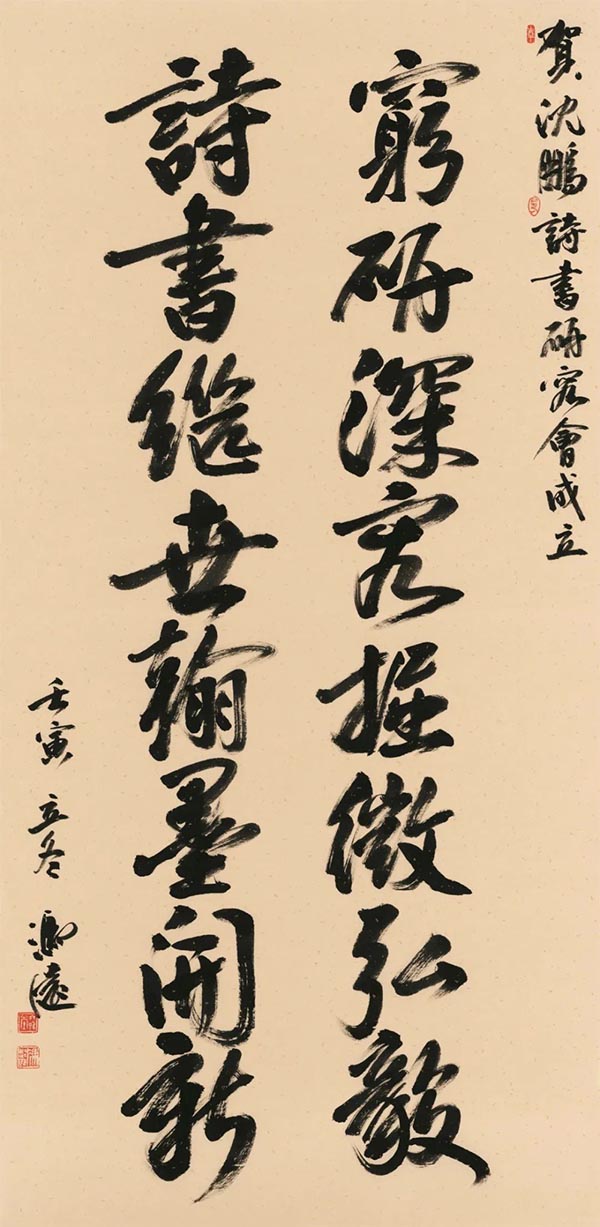 賀沈鵬詩書研究會成立
窮研深究掘微弘毅
詩書繼世翰墨開新
壬寅立冬 馮遠